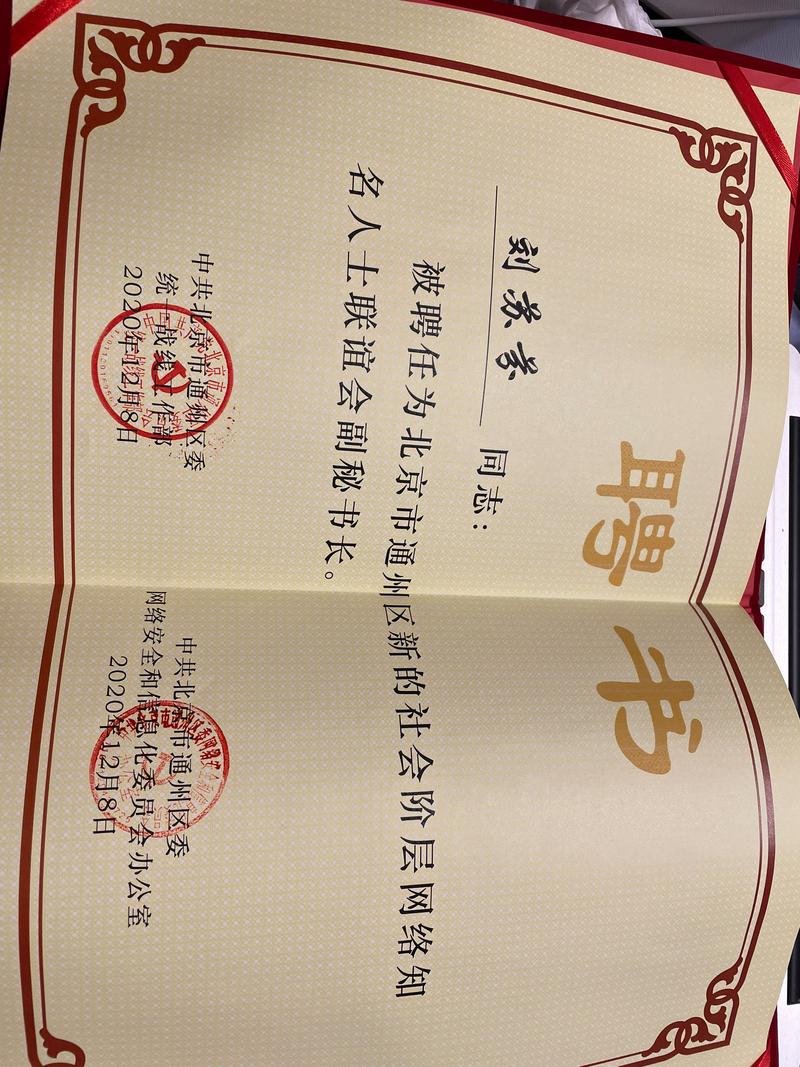 聘书
刘苏 同志：
被聘任为北京市通州区新的社会阶层网络知
名人士联谊会副秘书长。
中共北京市通州区委
统一战线工作部
2020年12月8日
中共北京市通州区委
网络安全和信息化委员会办公室
2020年12月8日